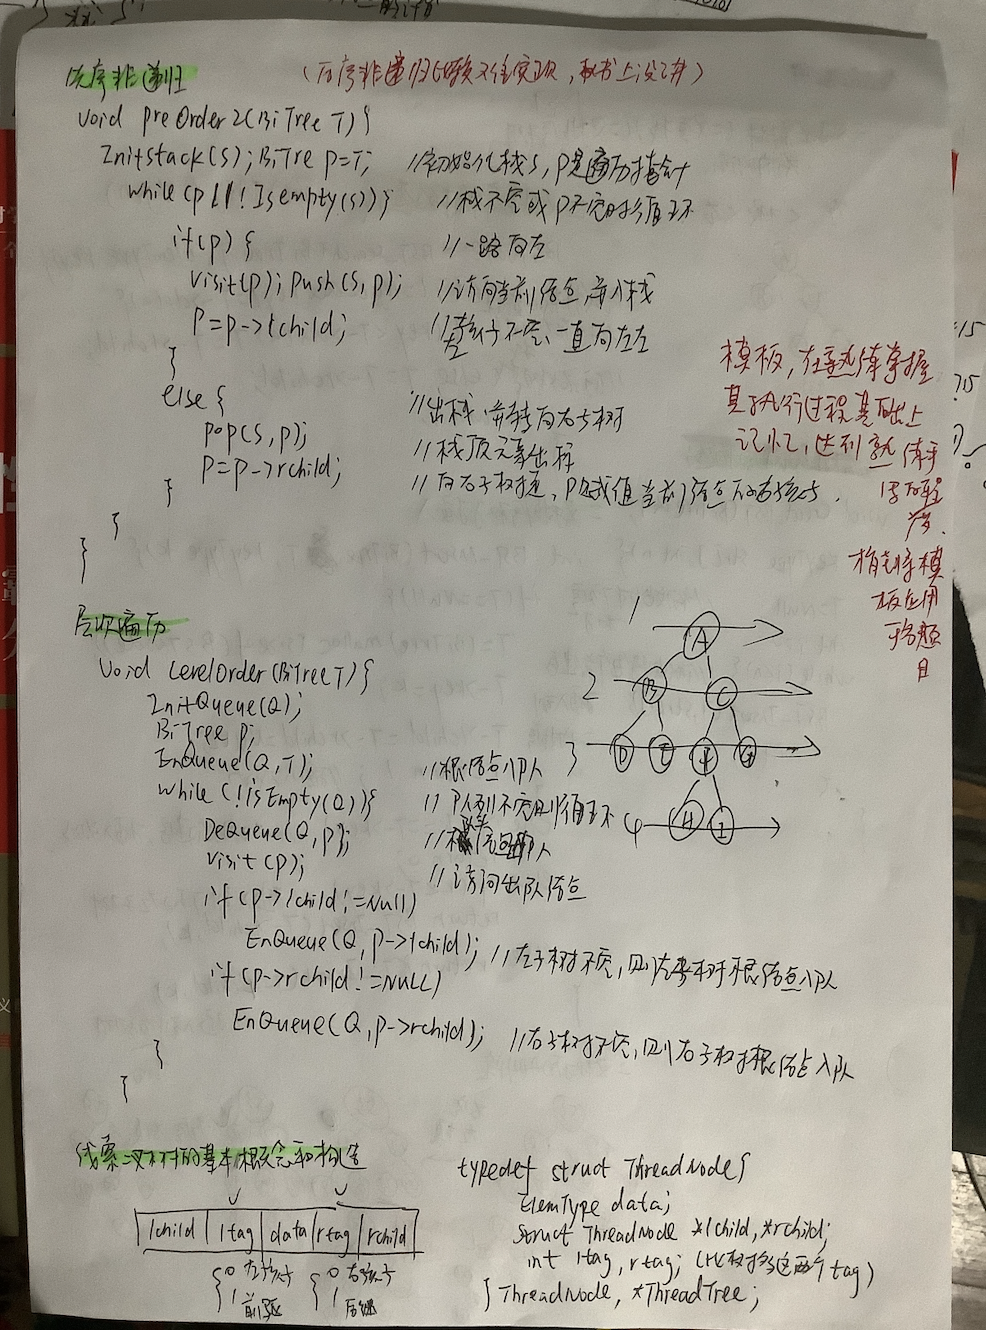 先序非递归
（后序非递归比较难实现，秘书上没讲）
void preOrder2(BiTree T){
InitStack(S); BiTre p=T; //初始化栈S，P是遍历指针
while(p||!Isempty(s)){ //栈不空或P不空时循环
if(p){ //一路向左
visit(p); push(s,p); //访问当前结点，并入栈
P=p->lchild; //左孩子不空，一直向左
}
else{ //出栈，并转向右子树
pop(S,p); //栈顶元素出栈
P=p->rchild; //向右子树走，P赋值当前结点的右孩子.
}
}
}
模板，在熟练掌握
其执行过程基础上
记忆，达到熟练手
写的程
度.
将模
板应用
于题
目
层次遍历
void LevelOrder(BiTree T){
InitQueue(Q);
BiTree p;
EnQueue(Q,T); //根结点入队
while(!isEmpty(Q)){ //队列不空则循环
DeQueue(Q,p); //队头结点出队
visit(p); //访问出队结点
if(p->lchild!=Null)
EnQueue(Q,p->lchild); //左子树不空，则左子树根结点入队
if(p->rchild!=NULL)
EnQueue(Q,p->rchild); //右子树不空，则右子树根结点入队
}
}
1 A
2 B C
3 D E F G
4 H I
线索二叉树的基本概念和构造
lchild ltag data rtag rchild
0 左孩子 0 右孩子
1 前驱 1 后继
typedef struct ThreadNode{
ElemType data;
Struct ThreadNode *lchild,*rchild;
int ltag, rtag; (比树多这两个tag)
}ThreadNode, *ThreadTree;